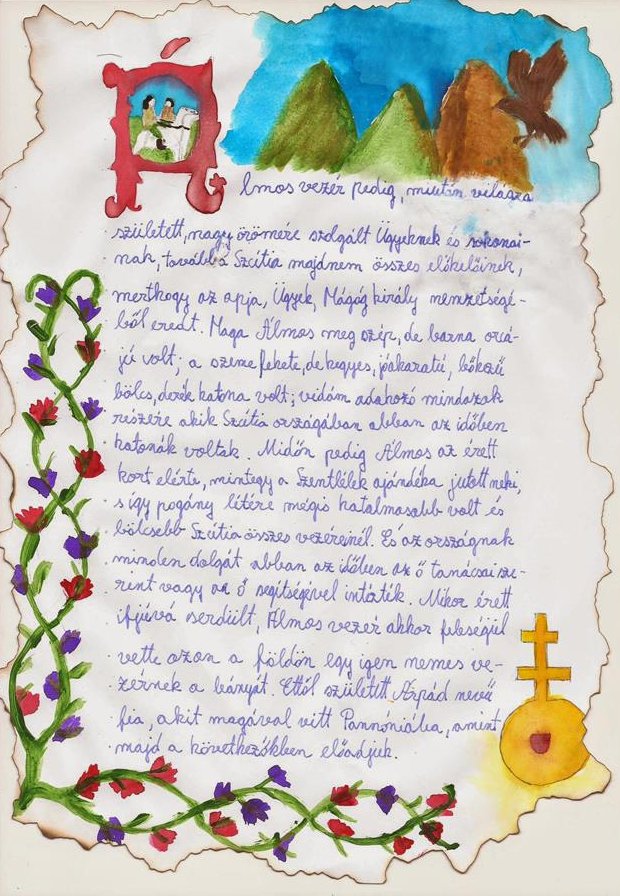 Álmos vezér pedig, miután világra
született, nagy örömére szolgált Ügyeknek és rokonai-
nak, továbbá Szcítia majdnem összes előkelőinek,
merthogy az apja, Ügyek, Mágóg király nemzetségé-
ből eredt. Maga Álmos meg szép, de barna orcá-
jú volt; a szeme fekete, de kegyes, jóakaratú, bőkezű
bölcs, derék katona volt; vidám adakozó mindazok
részére akik Szcítia országában abban az időben
katonák voltak. Midőn pedig Álmos az érett
kort elérte, mintegy a Szentlélek ajándéka jutott neki,
s így pogány létére mégis hatalmasabb volt és
bölcsebb Szcítia összes vezéreinél. És az országnak
minden dolgát abban az időben az ő tanácsai sze-
rint vagy az ő segítségével intézték. Mikor érett
ifjúvá serdült, Álmos vezér akkor feleségül
vette azon a földön egy igen nemes ve-
zérnek a leányát. Ettől született Árpád nevű
fia, akit magával vitt Pannóniába, amint
majd a következőkben előadjuk.